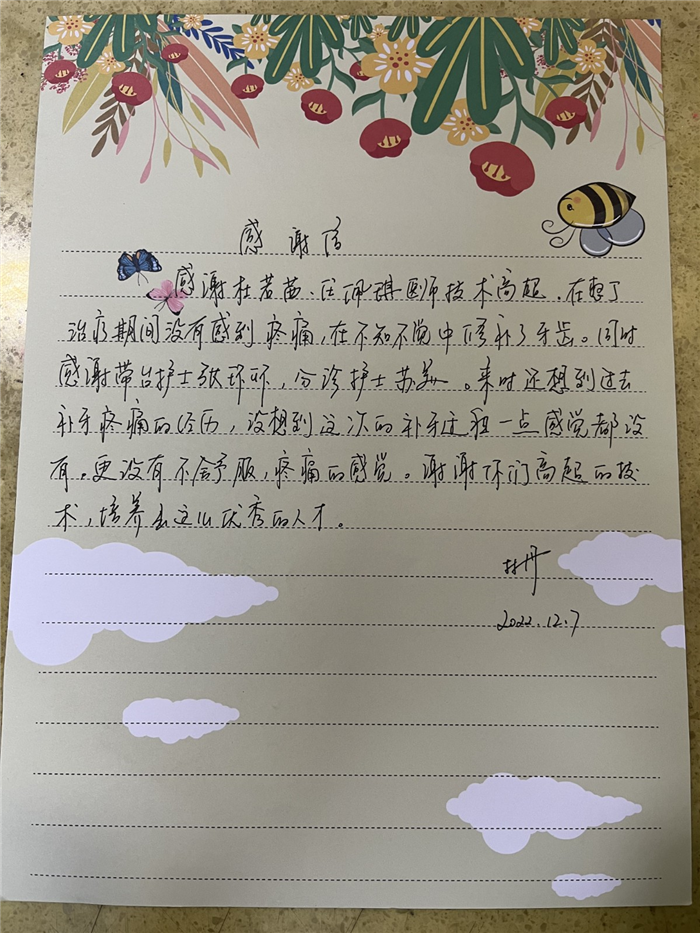 感谢信
感谢杜若茜、任佩琪医师技术高超,在整个
治疗期间没有感到疼痛,在不知不觉中修补了牙齿。同时
感谢带台护士张环环,分诊护士苏美。来时还想到过去
补牙疼痛的经历,没想到这次的补牙过程一点感觉都没
有。更没有不舒服,疼痛的感觉。谢谢你们高超的技
术,培养出这么优秀的人才。
2022.12.7